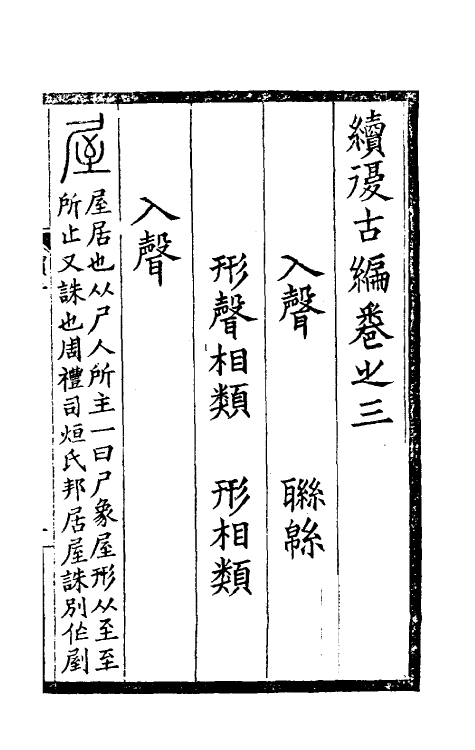 續復古編卷之三
入聲　聯緜
形聲相類　形相類
入聲
屋
屋居也从尸人所主一曰尸象屋形从至至
所止又誅也周禮司烜氏邦居屋誅別作剭